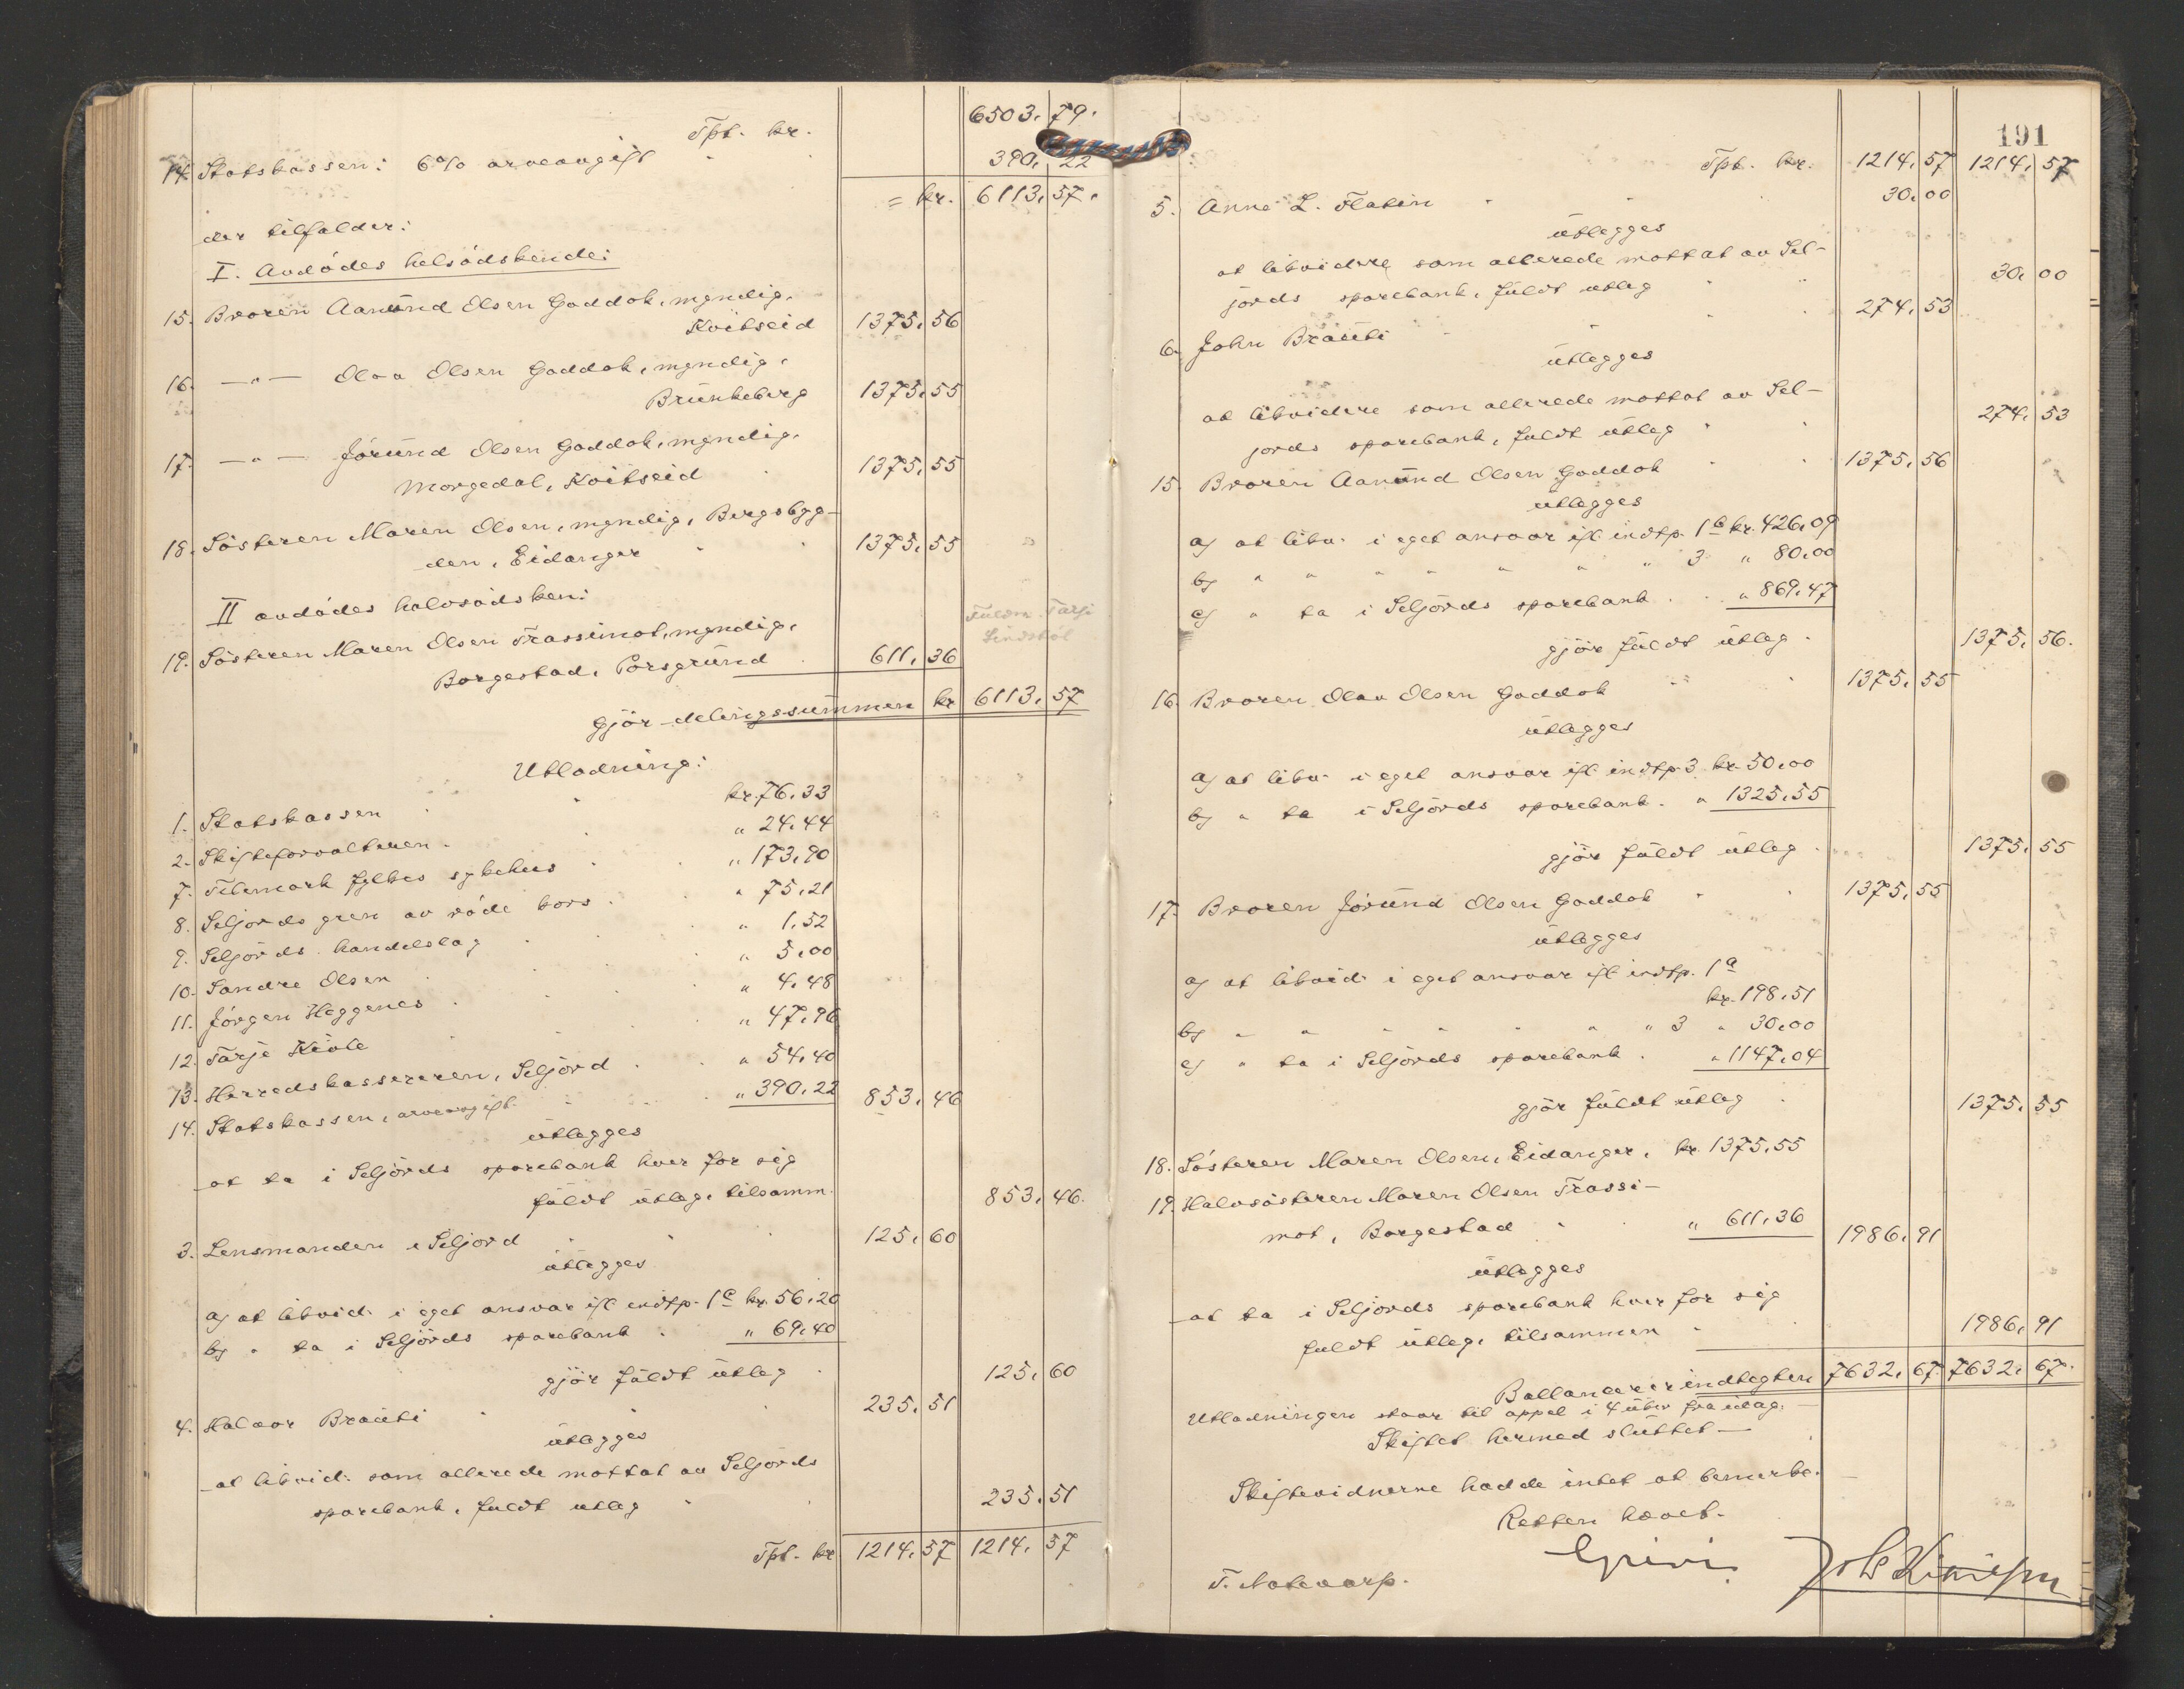 Tpt. kr. 6503. 79.
14. Statskassen: 6% arveavgift 390. 22
= kr. 6113. 57.
der tilfalder:
I. Avdödes helsödskende:
15. Broren Aanund Olsen Gaddok, myndig,
Kviteseid 1375. 56
16. —"— Olav Olsen Gaddok, myndig,
Brunkeberg 1375. 55
17. —"— Jörund Olsen Gaddok, myndig,
Morgedal, Kviteseid 1375. 55
18. Sösteren Maren Olsen, myndig, Bergsbyg-
den, Eidanger 1375. 55
II avdödes halvsödsken:
19. Sösteren Maren Olsen Trassimot, myndig,
Borgestad, Porsgrund 611. 36
Fuldm. Tarje
Lindstöl
gjör delingssummen kr 6113. 57
Utlodning:
1. Statskassen kr. 76.33
2. Skifteforvalteren " 24.44
7. Telemark fylkes sykehus " 173.90
8. Seljords gren av röde kors " 75.21
9. Seljords handelslag " 1.52
10. Sondre Olsen " 5.00
11. Jörgen Heggenes " 4.48
12. Tarje Kivle " 47.96
13. Herredskassereren, Seljord " 54.40
14. Statskassen, arveavgift " 390.22 853. 46
utlegges
at ta i Seljords sparebank hver for sig
fuldt utleg, tilsamm. 853. 46.
3. Lensmanden i Seljord 125. 60
utlegges
a) at likvid. i eget ansvar ifl. indtp. 1c kr. 56.20
b) " ta i Seljords sparebank " 69.40
gjör fuldt utleg 125. 60
4. Halvor Brauti 235. 51
utlegges
at likvid. som allerede mottat av Seljords
sparebank, fuldt utleg 235. 51
Tpt. kr 1214. 57 1214. 57
191
Tpt. kr. 1214. 57 1214. 57
5. Anne L. Flatin 30. 00
utlegges
at likvidere som allerede mottat av Sel-
jords sparebank, fuldt utleg 30. 00
6. John Brauti 274. 53
utlegges
at likvidere som allerede mottat av Sel-
jords sparebank, fuldt utleg 274. 53
15. Broren Aanund Olsen Gaddok 1375. 56
utlegges
a) at likv. i eget ansvar ifl. indtp. 1b kr. 426.09
b) " " " " " " " 3 " 80.00
c) " ta i Seljords sparebank " 869.47
gjör fuldt utleg 1375. 56.
16. Broren Olav Olsen Gaddok 1375. 55
utlegges
a) at likv. i eget ansvar ifl. indtp. 3 kr. 50.00
b) " ta i Seljords sparebank " 1325.55
gjör fuldt utleg 1375. 55
17. Broren Jörund Olsen Gaddok 1375. 55
utlegges
a) at likvid. i eget ansvar ifl. indtp. 1a
kr. 198.51
b) " " " " " " " 3 " 30.00
c) " ta i Seljords sparebank " 1147.04
gjör fuldt utleg 1375. 55
18. Sösteren Maren Olsen, Eidanger, kr. 1375.55
19. Halvsösteren Maren Olsen Trassi-
mot, Borgestad " 611.36 1986. 91
utlegges
at ta i Seljords sparebank hver for sig
fuldt utleg, tilsammen 1986. 91
Ballancerer indtegten 7632. 67. 7632. 67.
Utlodningen staar til appel i 4 uker fra idag.
Skiftet hermed sluttet —
Skiftevidnerne hadde intet at bemerke.
Retten hævet.
T. Notevarp.